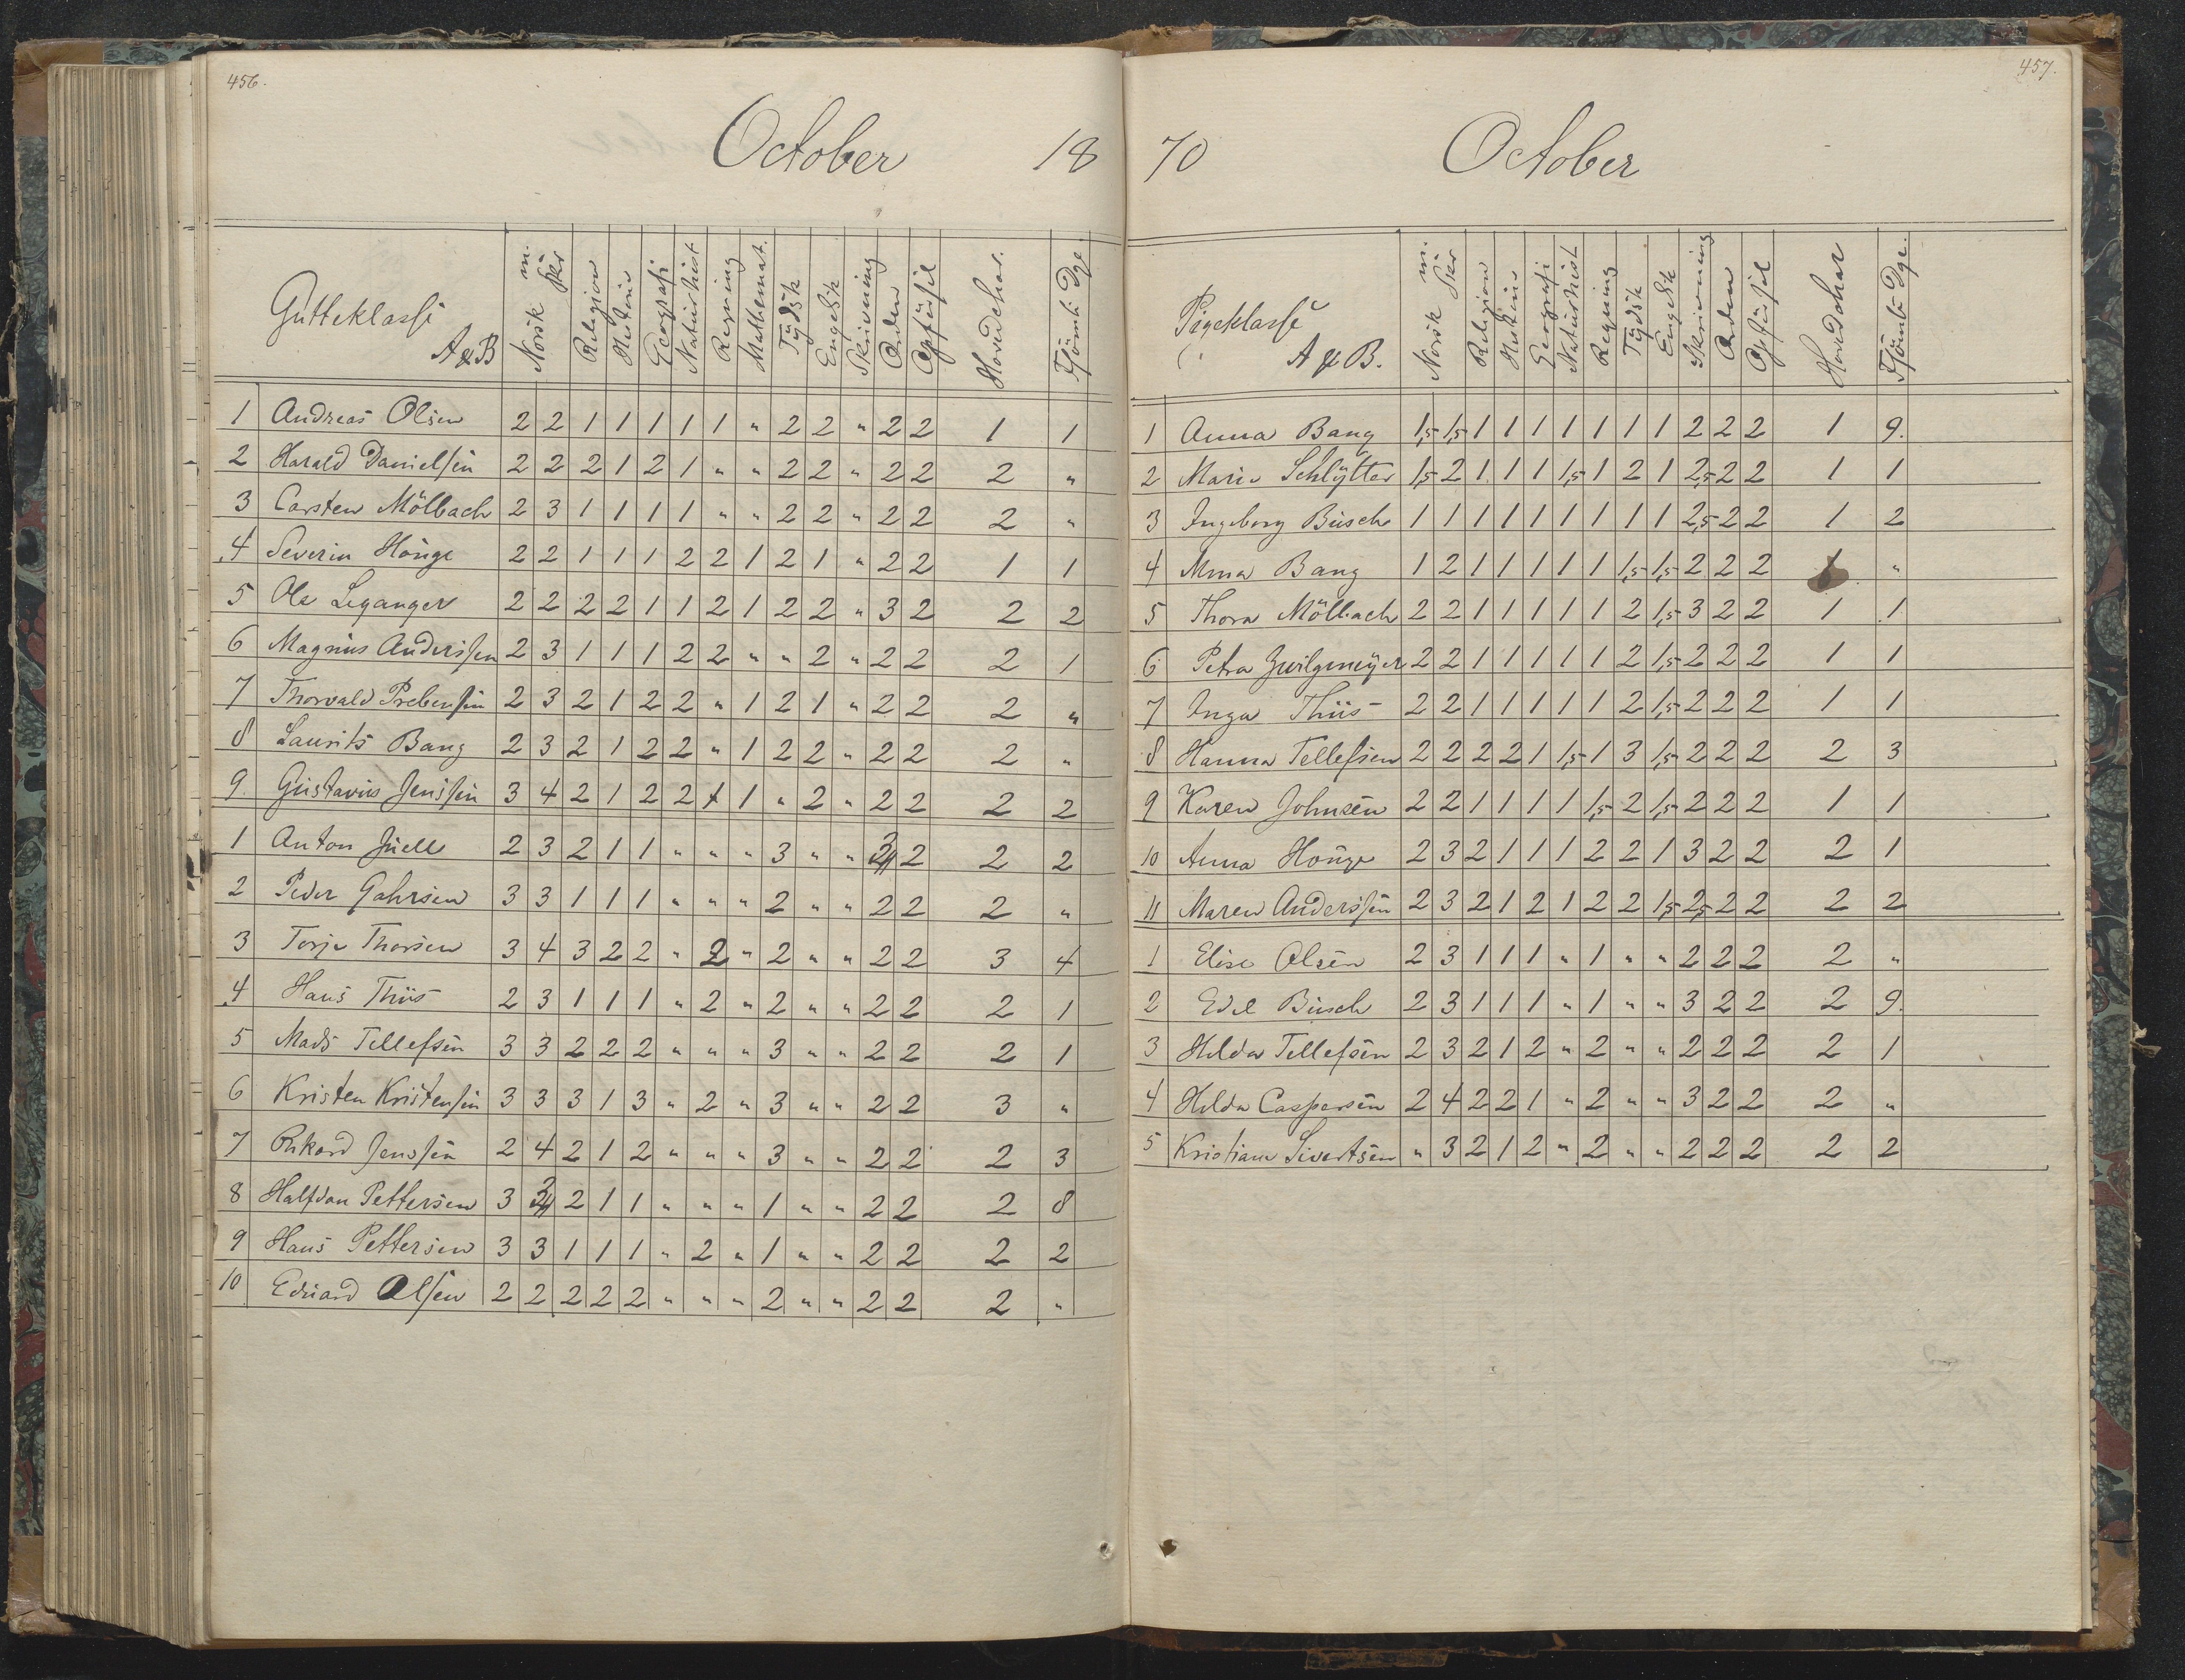 456.
October 18
Gutteklasse A & B | Norsk m. Skr | Religion | Historie | Geografi | Naturhist | Regning | Mathemat. | Tydsk | Engelsk | Skrivning | Orden | Opførsel | Hovedchar. | Forsömte Dge.
1 Andreas Olsen 2 2 1 1 1 1 1 " 2 2 " 2 2 1 1
2 Harald Danielsen 2 2 2 1 2 1 " " 2 2 " 2 2 2 "
3 Carsten Möllbach 2 3 1 1 1 1 " " 2 2 " 2 2 2 "
4 Severin Hönge 2 2 1 1 1 2 2 1 2 1 " 2 2 1 1
5 Ole Leganger 2 2 2 2 1 1 2 1 2 2 " 3 2 2 2
6 Magnus Anderssen 2 3 1 1 1 2 2 " " 2 " 2 2 2 1
7 Thorvald Prebensen 2 3 2 1 2 2 " 1 2 1 " 2 2 2 "
8 Laurits Bang 2 3 2 1 2 2 " 1 2 2 " 2 2 2 "
9 Gustavus Jenssen 3 4 2 1 2 2 1 " 2 " 2 2 2 2
1 Anton Juell 2 3 2 1 1 " " " 3 " " 2 2 2
2 Peder Gahrsen 3 3 1 1 1 " " " 2 " " 2 2 2 "
3 Terje Thorsen 3 4 3 2 2 " 2 " 2 " " 2 2 3 4
4 Hans Thiis 2 3 1 1 1 " 2 " 2 " " 2 2 2 1
5 Mads Tellefsen 3 3 2 2 2 " " " 3 " " 2 2 2 1
6 Kristen Kristensen 3 3 3 1 3 " 2 " 3 " " 2 2 3 "
7 Rikard Jenssen 2 4 2 1 2 " " " 3 " " 2 2 2 3
8 Halfdan Pettersen 3 3 2 1 1 " " " 1 " " 2 2 2 8
9 Hans Pettersen 3 3 1 1 1 " 2 " 1 " " 2 2 2 2
10 Eduard Olsen 2 2 2 2 2 " " " 2 " " 2 2 2 "
457.
70 October
Pigeklasse A & B. | Norsk m. Skr | Religion | Historie | Geografi | Naturhist | Regning | Tydsk | Engelsk | Skrivning | Orden | Opførsel | Hovedchar | Forsömte Dge.
1 Anna Bang 1,5 1,5 1 1 1 1 1 1 1 2 2 2 1 9.
2 Marie Schlytter 1,5 2 1 1 1 1,5 1 2 1 2,5 2 2 1 1
3 Ingeborg Busch 1 1 1 1 1 1 1 1 1 2,5 2 2 1 2
4 Mina Bang 1 2 1 1 1 1 1 1,5 1,5 2 2 2 1 "
5 Thora Möllbach 2 2 1 1 1 1 1 2 1,5 3 2 2 1 1
6 Petra Zwilgmeyer 2 2 1 1 1 1 1 2 1,5 2 2 2 1 1
7 Inga Thiis 2 2 1 1 1 1 1 2 1,5 2 2 2 1 1
8 Hanna Tellefsen 2 2 2 2 1 1,5 1 3 1,5 2 2 2 2 3
9 Karen Johnsen 2 2 1 1 1 1 1,5 2 1,5 2 2 2 1 1
10 Anna Hönge 2 3 2 1 1 1 2 2 1 3 2 2 2 1
11 Maren Anderssen 2 3 2 1 2 1 2 2 1,5 2,5 2 2 2 2
1 Elise Olsen 2 3 1 1 1 " 1 " " 2 2 2 2 "
2 Edel Busch 2 3 1 1 1 " 1 " " 3 2 2 2 9.
3 Hilda Tellefsen 2 3 2 1 2 " 2 " " 2 2 2 2 1
4 Hilda Caspersen 2 4 2 2 1 " 2 " " 3 2 2 2 "
5 Kristiane Sivertsen " 3 2 1 2 " 2 " " 2 2 2 2 2